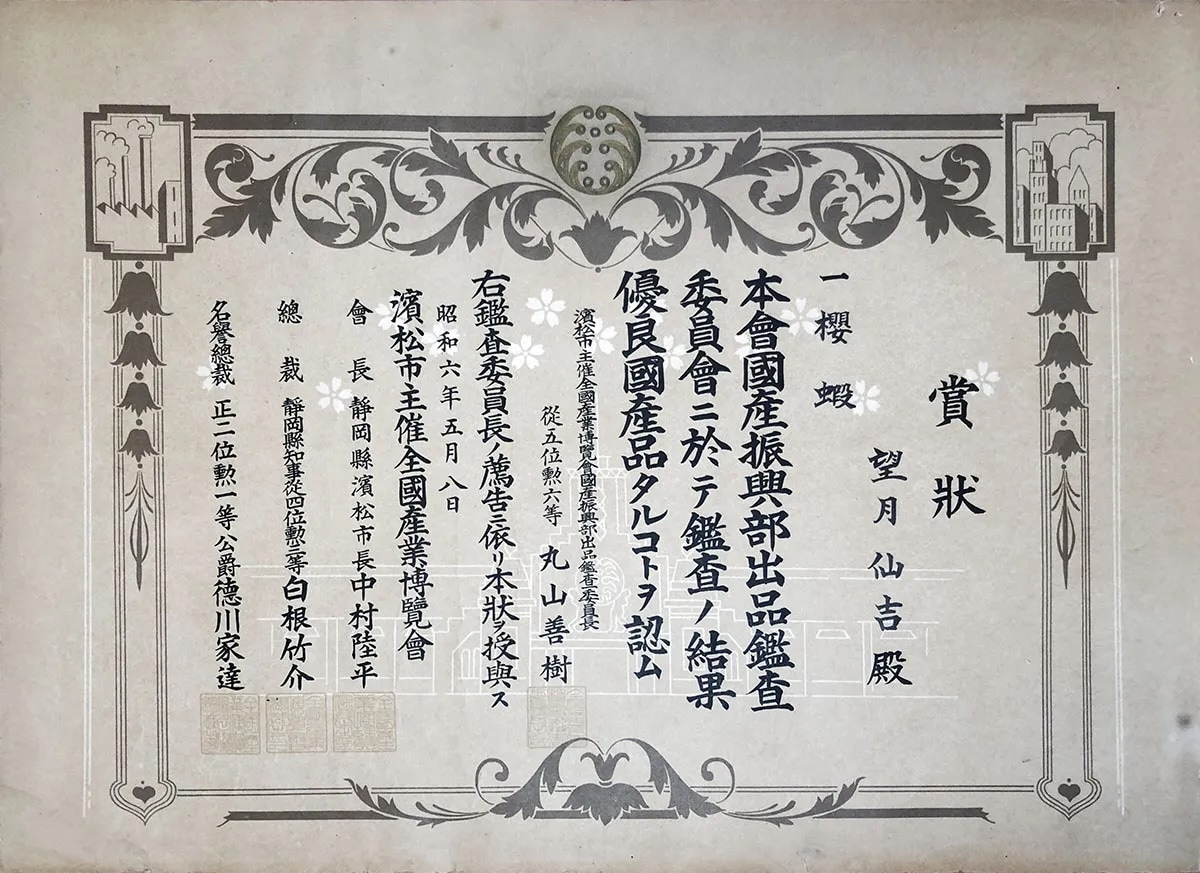 賞狀
望月仙吉殿
一櫻蝦
本會國產振興部出品鑑査
委員會ニ於テ鑑査ノ結果
優良國產品タルコトヲ認ム
濱松市主催全國產業博覽會國產振興部出品鑑査委員長
從五位勲六等 丸山善樹
右鑑査委員長ノ薦告ニ依リ本狀ヲ授與ス
昭和六年五月八日
濱松市主催全國產業博覽會
會長 靜岡縣濱松市長 中村陸平
總裁 靜岡縣知事從四位勲三等 白根竹介
名譽總裁 正二位勲一等公爵 德川家達